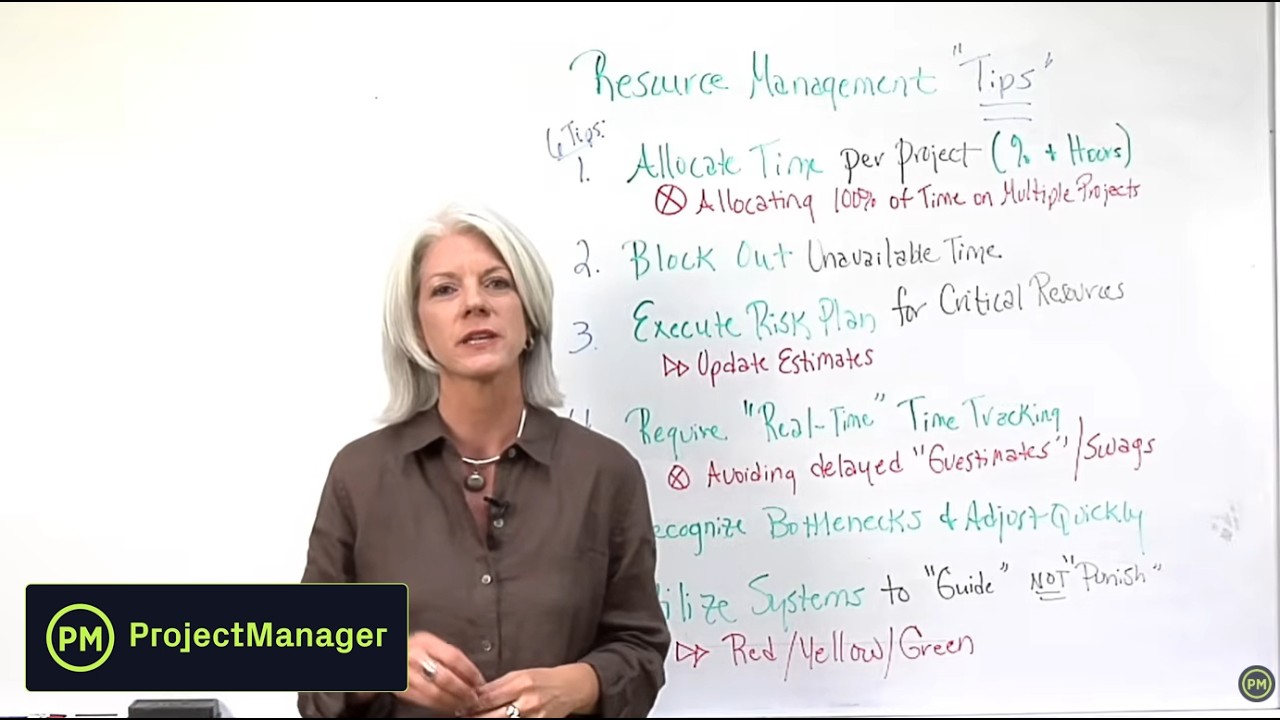 Resource Management "Tips"
6 Tips:
1. Allocate Time per Project (% + Hours)
Ⓧ Allocating 100% of Time on Multiple Projects
2. Block Out Unavailable Time.
3. Execute Risk Plan for Critical Resources
▷▷ Update Estimates
Require "Real-Time" Time Tracking
Ⓧ Avoiding delayed "Guestimates"/Swags
ecognize Bottlenecks & Adjust Quickly
ilize Systems to "Guide" NOT "Punish"
▷▷ Red/Yellow/Green
PM ProjectManager
PM